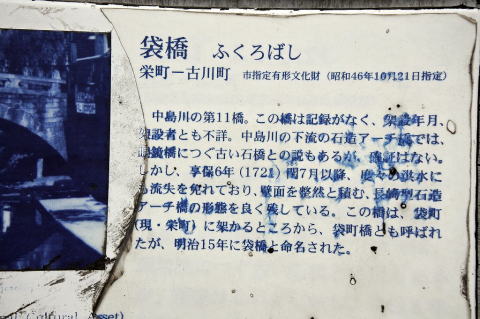 袋橋 ふくろばし
栄町－古川町 市指定有形文化財（昭和46年10月21日指定）
中島川の第11橋。この橋は記録がなく、架設年月、
架設者とも不詳。中島川の下流の石造アーチ橋では、
眼鏡橋につぐ古い石橋との説もあるが、確証はない。
しかし、享保6年（1721）閏7月以降、度々の洪水に
も流失を免れており、壁面を整然と積む、長崎型石造
アーチ橋の形態を良く残している。この橋は、袋町
（現・栄町）に架かるところから、袋町橋とも呼ばれ
たが、明治15年に袋橋と命名された。
Cultural Asset)